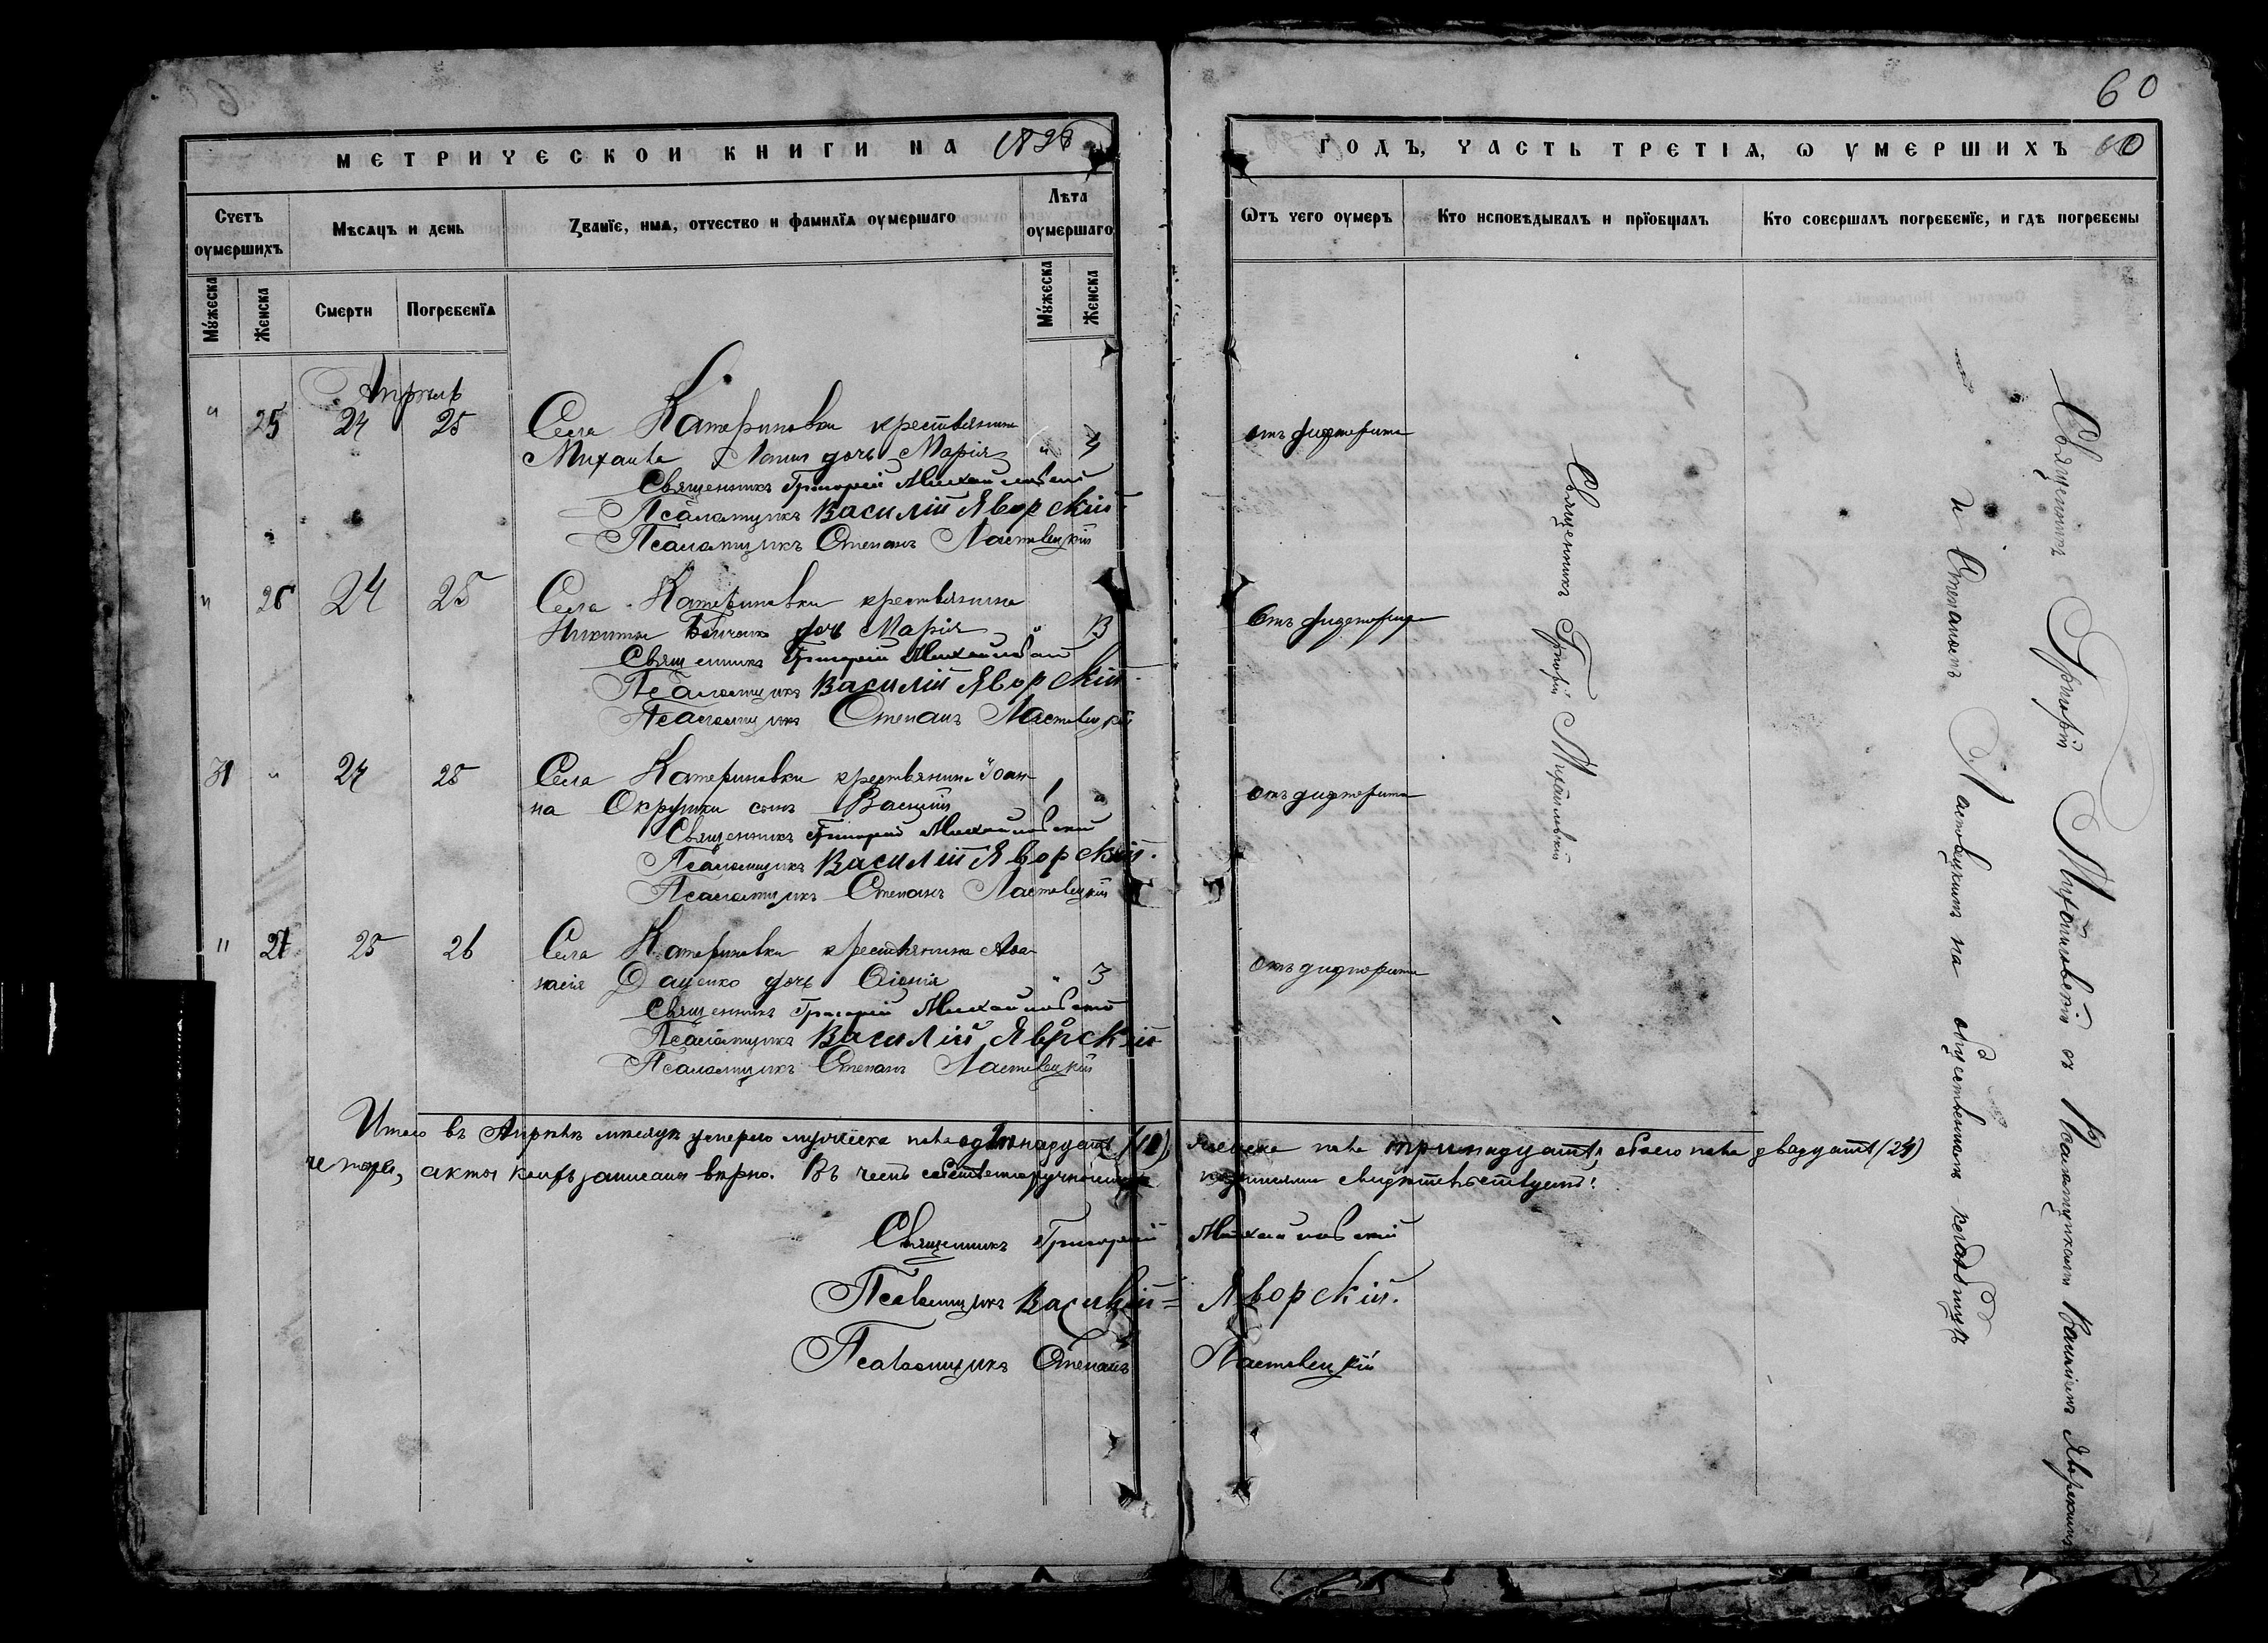 60
МЕТРИЧЕСКОЙ КНИГИ НА 1898
ГОДЪ, ЧАСТЬ ТРЕТІѦ, Ѡ УМЕРШИХЪ 60
Счетъ оумершихъ
Мѣсяцъ и день
Званїе, имѧ, отчество и фамилїѧ оумершаго
Лѣта оумершаго
Ѿтъ чего оумеръ
Кто исповѣдывалъ и прїобщалъ
Кто совершалъ погребенїе, и гдѣ погребены
Мꙋжеска
Женска
Смерти
Погребенїѧ
Мꙋжеска
Женска
Апрѣль
" 25 24 25 Села Катериновки крестьянина
Михаила дочь Марія " 4 отъ дифтерита
Священникъ Григорій Михайловскій
Псаломщикъ Василій Яворскій
Псаломщикъ Степанъ Ластовецкій
" 26 24 25 Села Катериновки крестьянина
Никиты дочь Марія " Отъ дифтерита
Священникъ Григорій Михайловскій
Псаломщикъ Василій Яворскій
Псаломщикъ Степанъ Ластовецкій
" 24 25 Села Катериновки крестьянина Іоан-
на сынъ Василій 1 " отъ дифтерита
Священникъ Григорій Михайловскій
Псаломщикъ Василій Яворскій.
Псаломщикъ Степанъ Ластовецкій
" 27 25 26 Села Катериновки крестьянина Афа-
насія Даценко дочь " 3 отъ дифтерита
Священникъ Григорій Михайловскій
Псаломщикъ Василій Яворскій
Псаломщикъ Степанъ Ластовецкій
Священникъ Григорій Михайловскій
Священникъ Григорій Михайловскій съ Псаломщиками Василіемъ Яворскимъ
и Степаномъ Ластовецкимъ на кладбищѣ
Итого въ Апрѣлѣ мѣсяцѣ умерло мужеска пола одиннадцать (11), женска пола тринадцать, обоего пола двадцать (24)
четыре, акты записаны вѣрно. Въ чемъ собственноручными подписями свидѣтельствуемъ:
Священникъ Григорій Михайловскій
Псаломщикъ Василій Яворскій.
Псаломщикъ Степанъ Ластовецкій